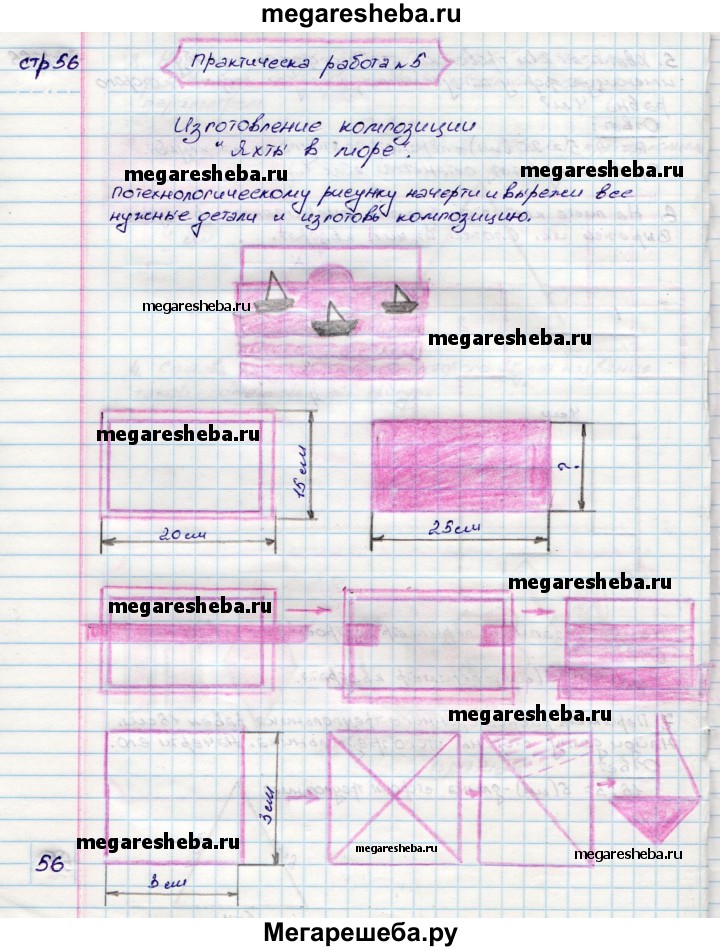 megaresheba.ru
стр 56
Практическа работа № 5
Изготовление композиции
"Яхты в море".
megaresheba.ru
megaresheba.ru
потехнологическому рисунку начерти и вырежи все
нужные детали и изготовь композицию.
megaresheba.ru
megaresheba.ru
megaresheba.ru
15 см
?
20 см
25 см
megaresheba.ru
megaresheba.ru
megaresheba.ru
3 см
megaresheba.ru
megaresheba.ru
megaresheba.ru
56
3 см
Мегарешеба.ру